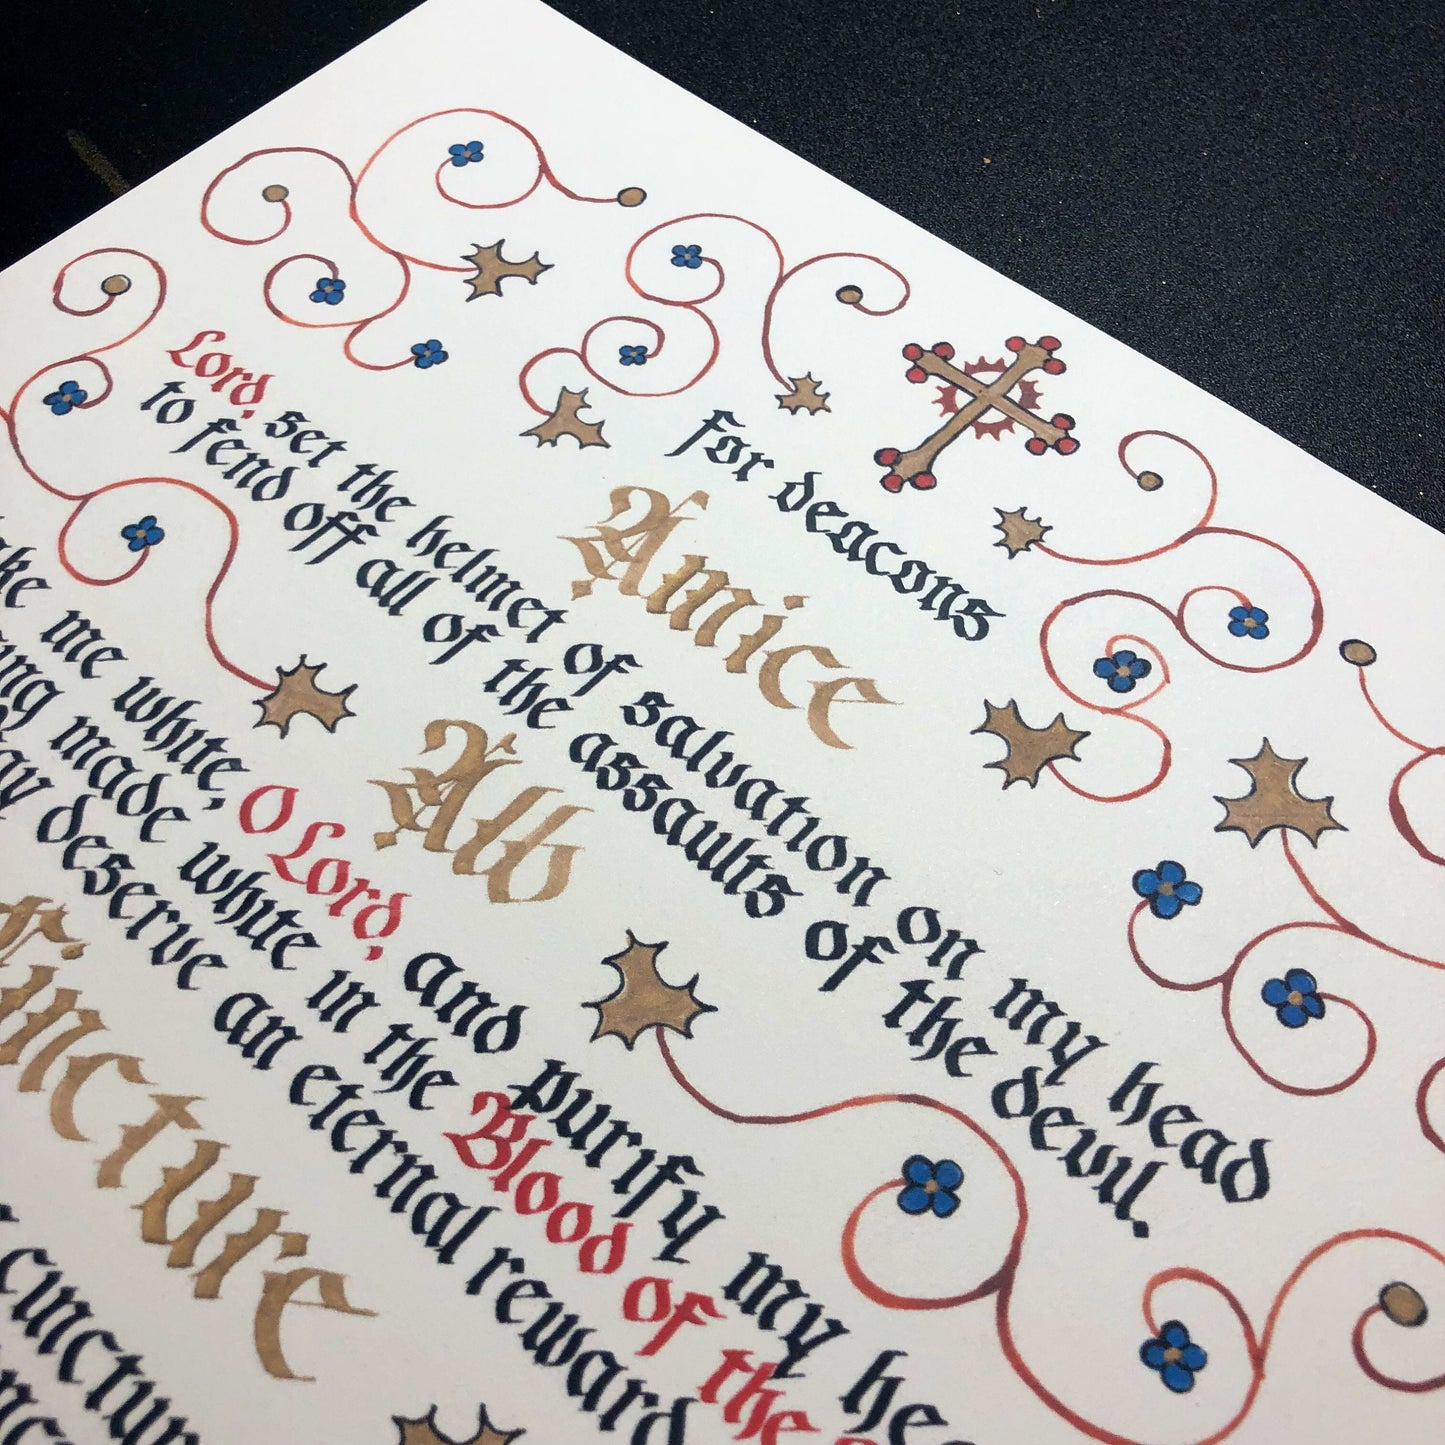 for deacons
Amice
Lord, set the helmet of salvation on my head
to fend off all of the assaults of the devil.
Alb
me white, O Lord, and purify my
made white in the Blood of the
deserve an eternal reward
Cincture